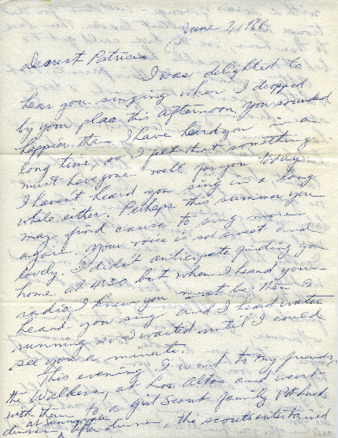 June 7, 1966
Dearest Patricia
I was delighted to
hear you singing when I dropped
by your place this afternoon, you sounded
happier than I have heard you in a
long time, so I felt that something
must have gone well for you today.
I haven't heard you sing in a long
while either. Perhaps this summer you
may find cause to sing more
again. Your voice is so sweet and
lovely. I didn't anticipate finding you
home at 4:20 but when I heard your
radio I knew you must be then I
heard you sing and I heard water
running so I waited until I could
see you a minute.
This evening I went to my friends,
the Walkers, at Los Altos and went
with them to a Girl Scout Family Potluck
dinner at Sunnyvale
After dinner, the scouts entertained